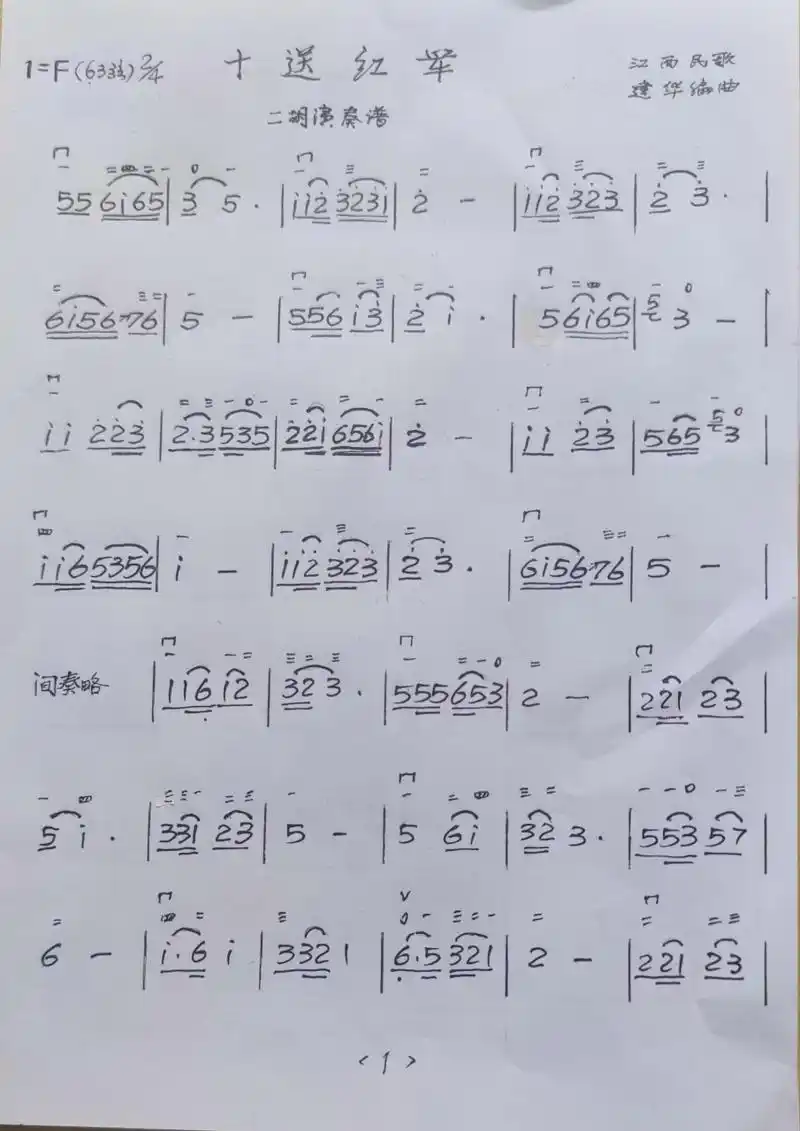 1=F(6333) 2/4 十送红军 江西民歌
二胡演奏谱 建华编曲
55 6i65 | 3 5 · | ii2 3231 | 2 – | ii2 323 | 2 3 · |
6i5676 | 5 – | 556 i3 | 2 i · | 56i65 | 5 3 – |
ii 223 | 2·3535 | 22i 656i | 2 – | ii 23 | 565 5 3 |
ii65356 | i – | ii2 323 | 2 3 · | 6i5676 | 5 – |
间奏略 | 116 12 | 32 3 · | 555653 | 2 – | 221 23 |
5 i · | 331 23 | 5 – | 5 6i | 32 3 · | 553 57 |
6 – | i·6 i | 332 1 | 6·5 321 | 2 – | 221 23 |
<1>